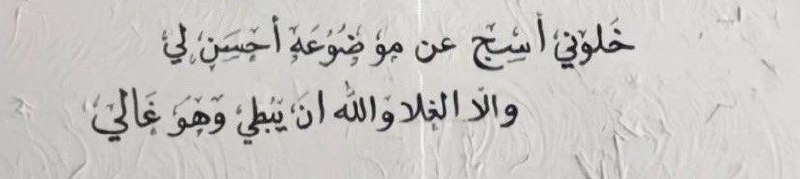 خَلوني أسِج عن موضُوعَه أحسَن لي
والا الغلا والله ان يَبطي وهوَ غَالي